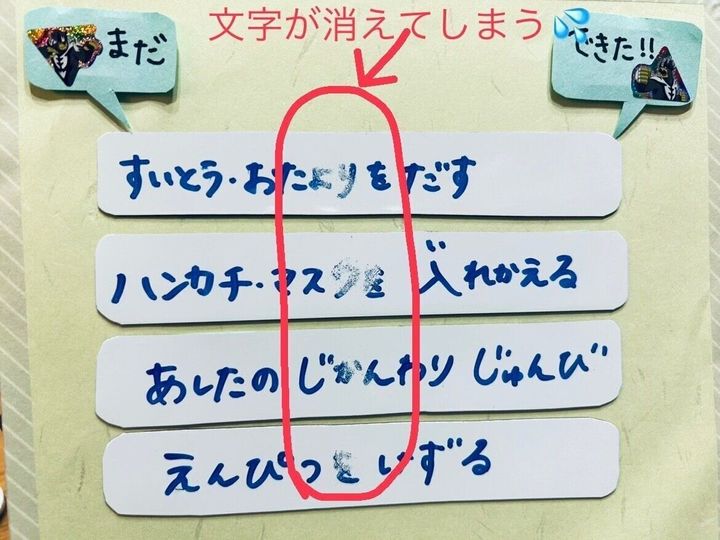 文字が消えてしまう💦
まだ
できた!!
すいとう・おたよりをだす
ハンカチ・マスクを入れかえる
あしたのじかんわりじゅんび
えんぴつをけずる